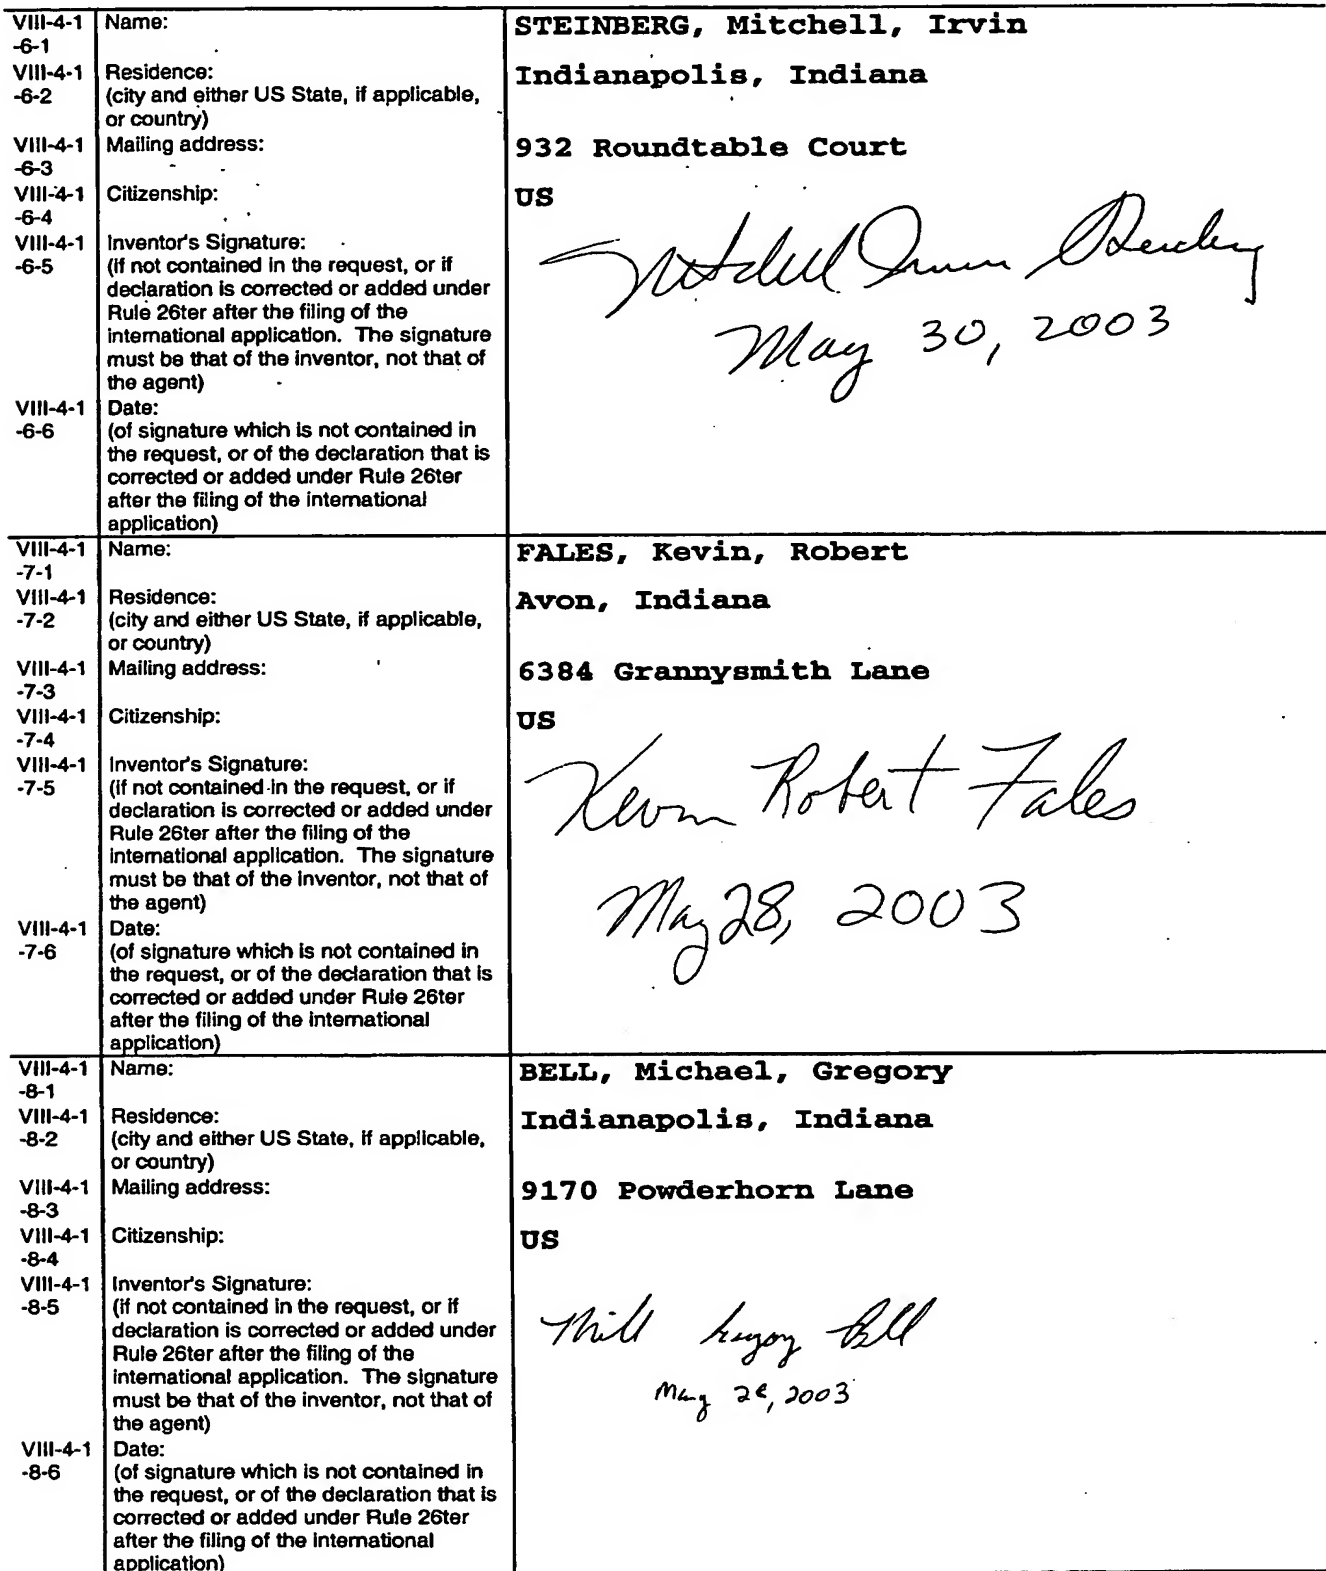 VIII-4-1 Name: STEINBERG, Mitchell, Irvin
-6-1
VIII-4-1 Residence: Indianapolis, Indiana
-6-2 (city and either US State, if applicable,
or country)
VIII-4-1 Mailing address: 932 Roundtable Court
-6-3
VIII-4-1 Citizenship: US
-6-4
VIII-4-1 Inventor's Signature:
-6-5 (if not contained in the request, or if
declaration is corrected or added under
Rule 26ter after the filing of the
international application. The signature
must be that of the inventor, not that of
the agent)
Mitchell Irvin Steinberg
May 30, 2003
VIII-4-1 Date:
-6-6 (of signature which is not contained in
the request, or of the declaration that is
corrected or added under Rule 26ter
after the filing of the international
application)
VIII-4-1 Name: FALES, Kevin, Robert
-7-1
VIII-4-1 Residence: Avon, Indiana
-7-2 (city and either US State, if applicable,
or country)
VIII-4-1 Mailing address: 6384 Grannysmith Lane
-7-3
VIII-4-1 Citizenship: US
-7-4
VIII-4-1 Inventor's Signature:
-7-5 (if not contained in the request, or if
declaration is corrected or added under
Rule 26ter after the filing of the
international application. The signature
must be that of the inventor, not that of
the agent)
Kevin Robert Fales
May 28, 2003
VIII-4-1 Date:
-7-6 (of signature which is not contained in
the request, or of the declaration that is
corrected or added under Rule 26ter
after the filing of the international
application)
VIII-4-1 Name: BELL, Michael, Gregory
-8-1
VIII-4-1 Residence: Indianapolis, Indiana
-8-2 (city and either US State, if applicable,
or country)
VIII-4-1 Mailing address: 9170 Powderhorn Lane
-8-3
VIII-4-1 Citizenship: US
-8-4
VIII-4-1 Inventor's Signature:
-8-5 (if not contained in the request, or if
declaration is corrected or added under
Rule 26ter after the filing of the
international application. The signature
must be that of the inventor, not that of
the agent)
Gregory Bell
May 2003
VIII-4-1 Date:
-8-6 (of signature which is not contained in
the request, or of the declaration that is
corrected or added under Rule 26ter
after the filing of the international
application)